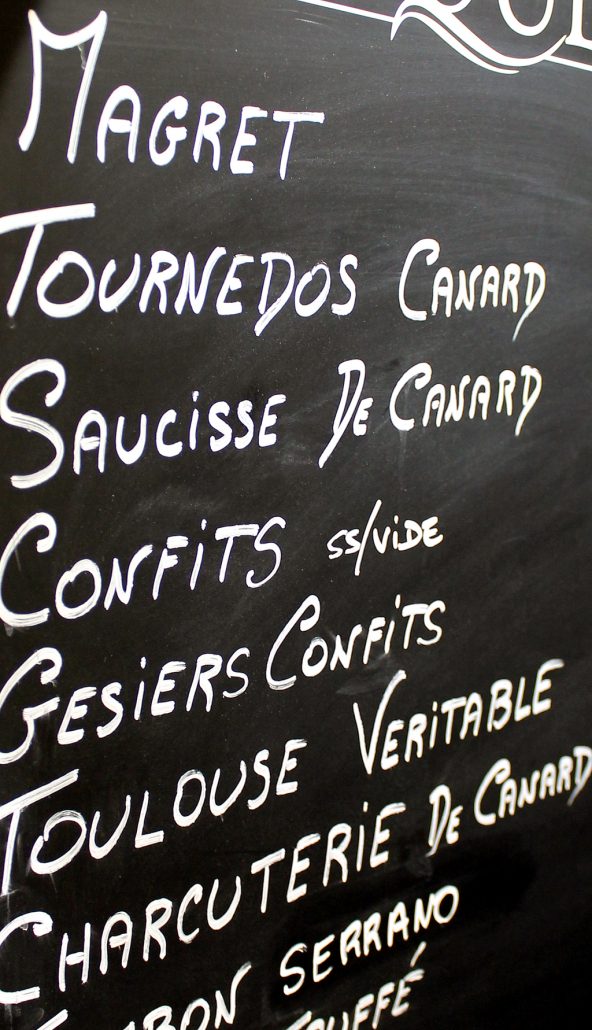 MAGRET
TOURNEDOS CANARD
SAUCISSE DE CANARD
CONFITS ss/VIDE
GESIERS CONFITS
TOULOUSE VERITABLE
CHARCUTERIE DE CANARD
SERRANO